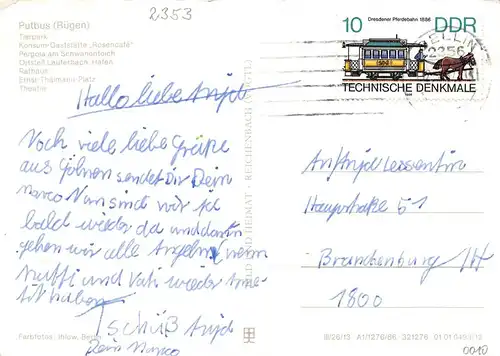 2353
Putbus (Rügen)
Tierpark
Konsum-Gaststätte „Rosencafé"
Pergola am Schwanenteich
Ortsteil Lauterbach, Hafen
Rathaus
Ernst-Thälmann-Platz
Theater
Hallo liebe Antje
Noch viele liebe Grüße
aus Göhren sendet Dir Dein
Marco Nun sind wir ja
bald wieder da und dann
gehen wir alle Angeln, wenn
Mutti und Vati wieder
Zeit haben
Tschüß Antje
Dein Marco
10 Dresdener Pferdebahn 1886 DDR
TECHNISCHE DENKMALE
SELLIN
2356
An Antje Lessentin
Hauptstraße 51
Brandenburg /H
1800
BILD UND HEIMAT · REICHENBACH
Farbfotos: Ihlow, Berlin
III/26/13 A1/1276/86 321276 01 01 0493
0010